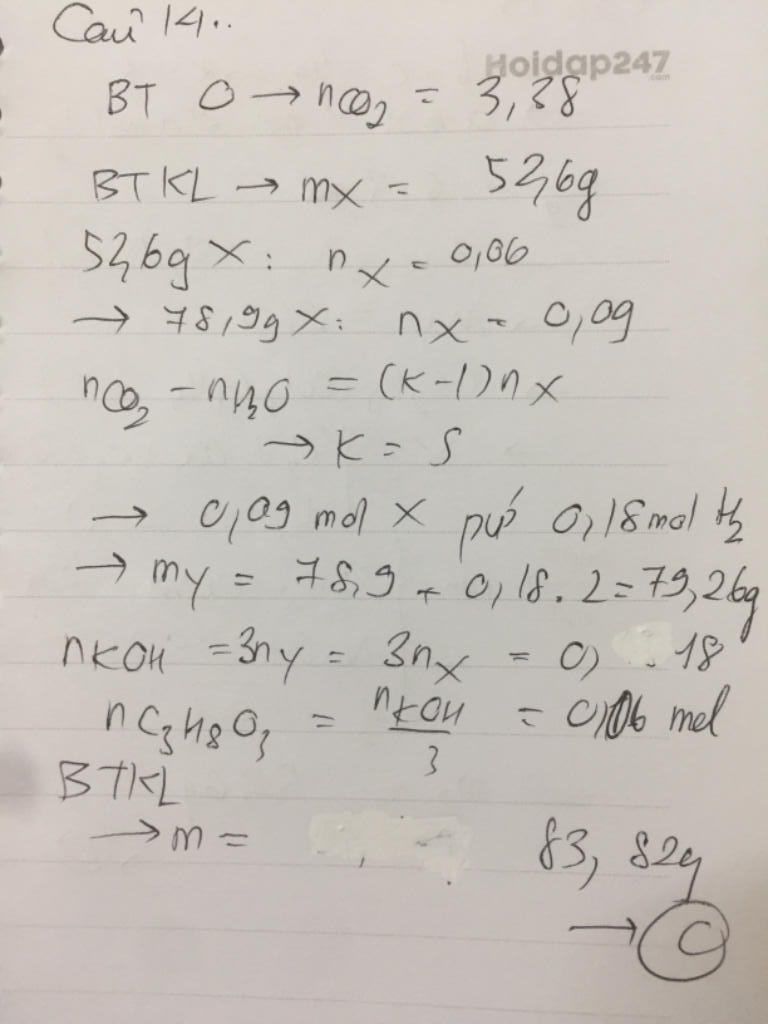 Câu 14..
Hoidap247
.com
BT O → nCO₂ = 3,38
BTKL → mX = 52,6g
52,6g X: nX = 0,06
→ 78,9g X: nX = 0,09
nCO₂ - nH₂O = (k-1)nX
→ k = 5
→ 0,09 mol X pứ 0,18 mol H₂
→ mY = 78,9 + 0,18.2 = 79,26g
nKOH = 3nY = 3nX = 0, 18
nC₃H₈O₃ = nKOH/3 = 0,06 mol
BTKL
→ m = 83,82g
→ C